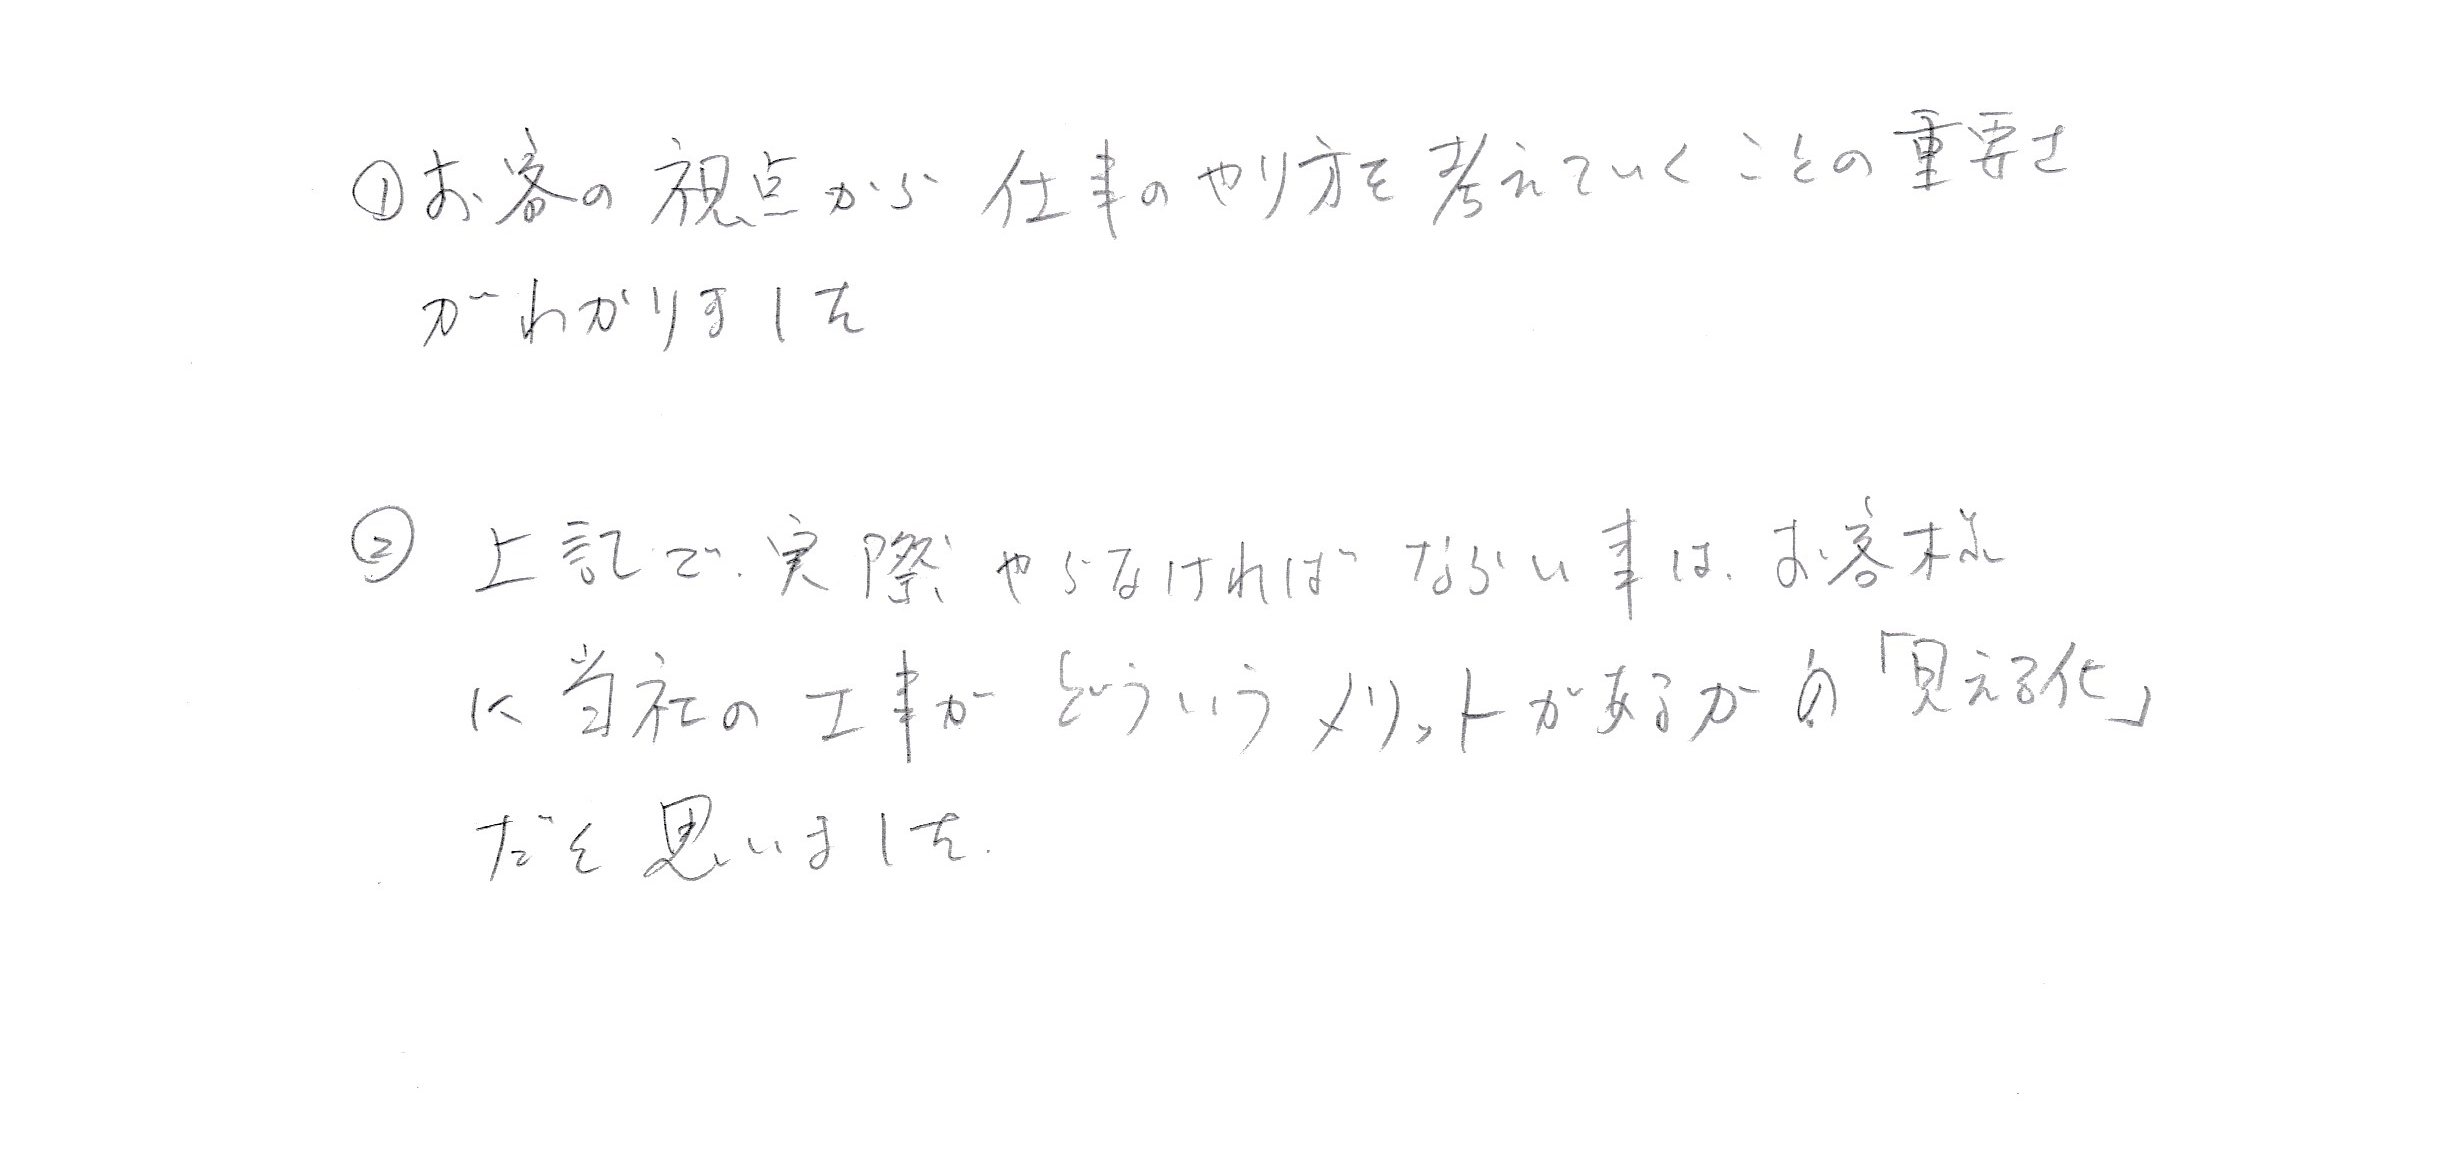 ①お客の視点から仕事のやり方を考えていくことの重要さ
がわかりました
② 上記で、実際やらなければならない事は、お客様
に当社の工事がどういうメリットがあるかの「見える化」
だと思いました.